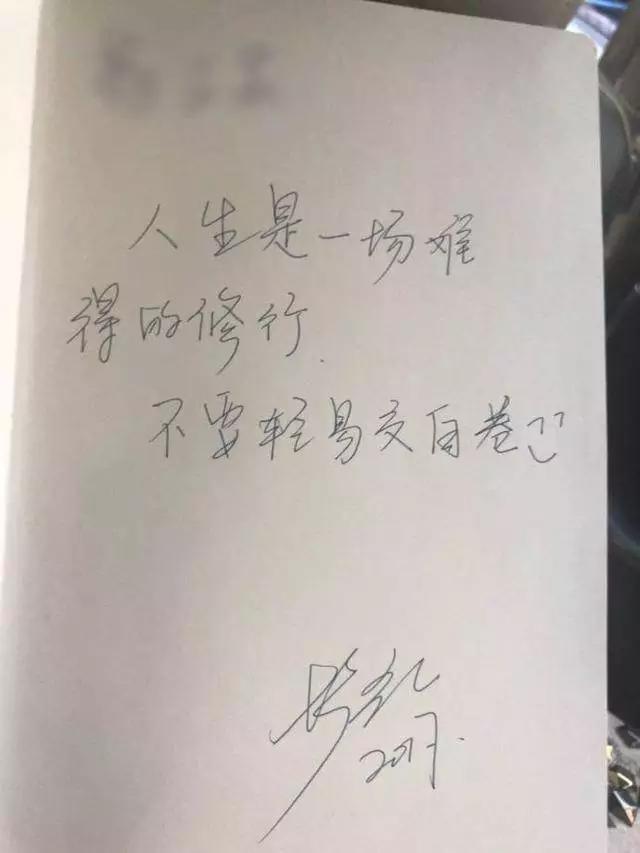 人生是一场难
得的修行.
不要轻易交白卷
2017.